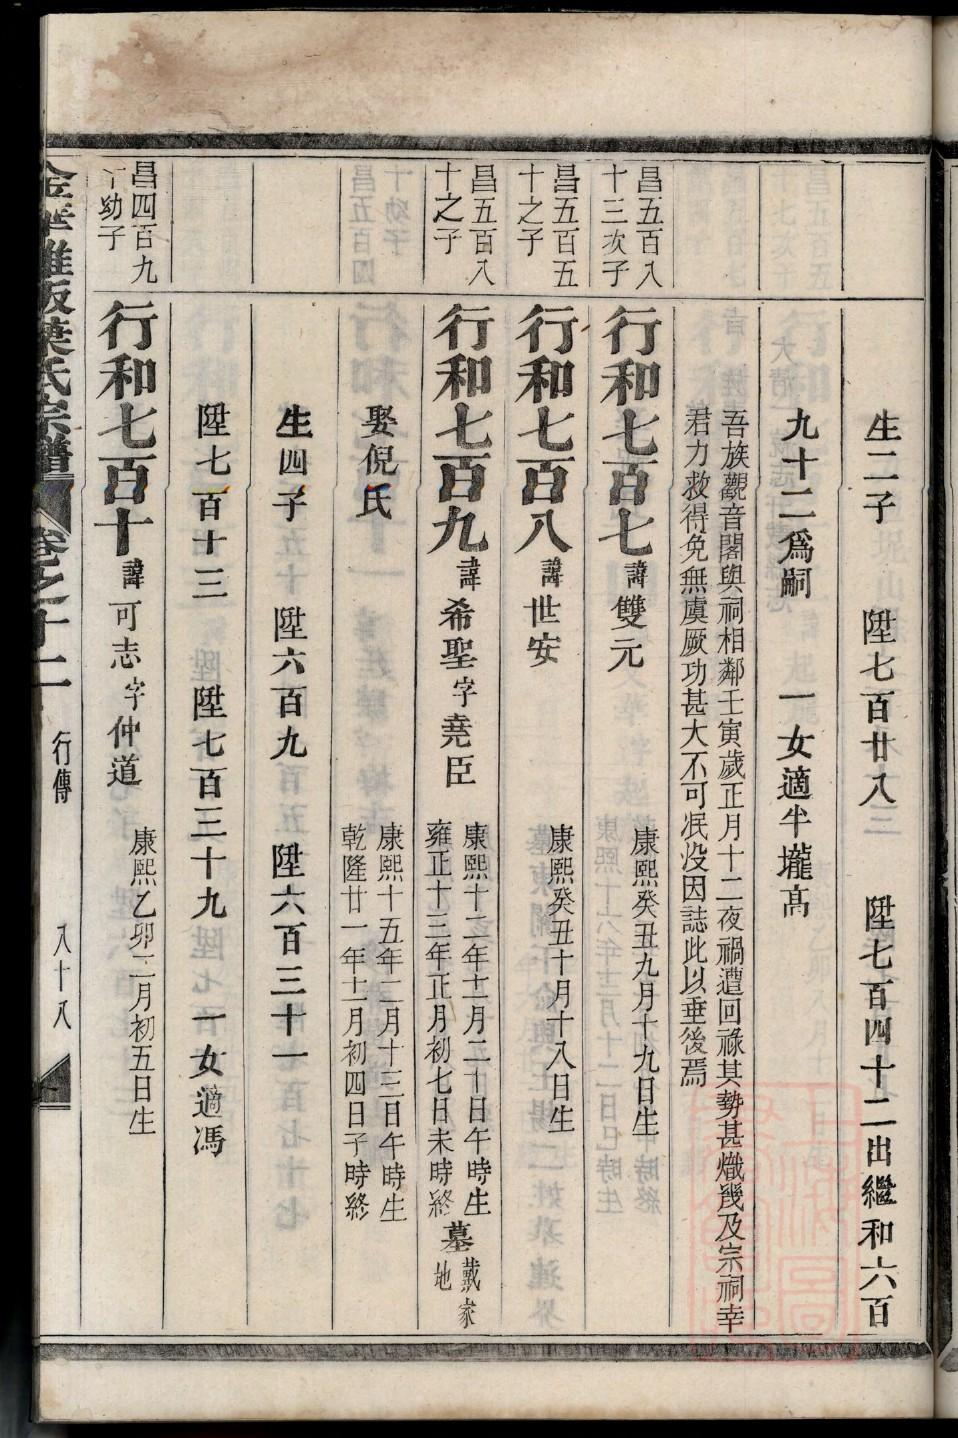 生二子　陞七百廿八　陞七百四十二出繼和六百
九十二爲嗣　一女適半壠髙
吾族觀音閣與祠相鄰壬寅歲正月十二夜禍遭回祿其勢甚熾幾及宗祠幸
君力救得免無虞厥功甚大不可冺沒因誌此以垂後焉
昌五百八
十三次子
行和七百七諱雙元　康熙癸丑九月十九日生
昌五百五
十之子
行和七百八諱世安　康熙癸丑十月十八日生
昌五百八
十之子
行和七百九諱希聖字堯臣
康熙十二年十一月二十日午時生
雍正十三年正月初七日未時終
墓戴家
地
娶倪氏
康熙十五年二月十三日午時生
乾隆廿一年十一月初四日子時終
生四子　陞六百九　陞六百三十一
陞七百十三　陞七百三十九　一女適馮
昌四百九
幼子
行和七百十諱可志字仲道　康熙乙卯二月初五日生
氏宗譜　卷之十一　行傳　八十八